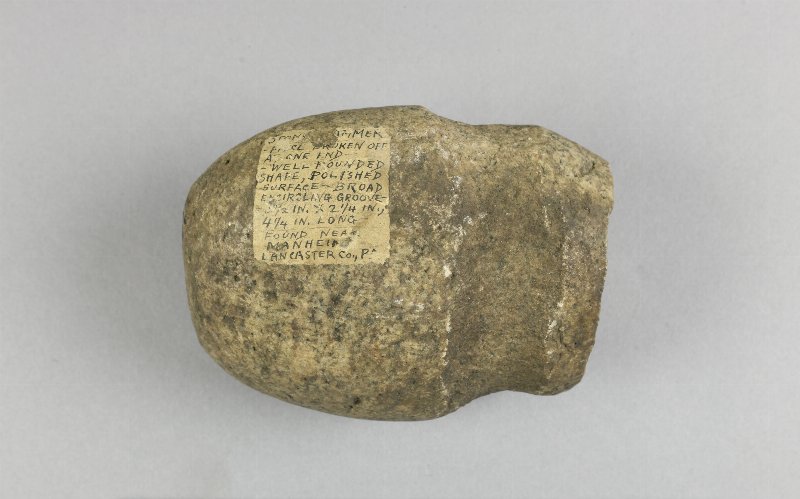 BROKEN OFF
END
WELL ROUNDED
SHAPE, POLISHED
SURFACE - BROAD
ENCIRCLING GROOVE-
1/2 IN. X 2 1/4 IN.,
4 1/4 IN. LONG
FOUND NEAR
MANHEIM
LANCASTER CO., PA